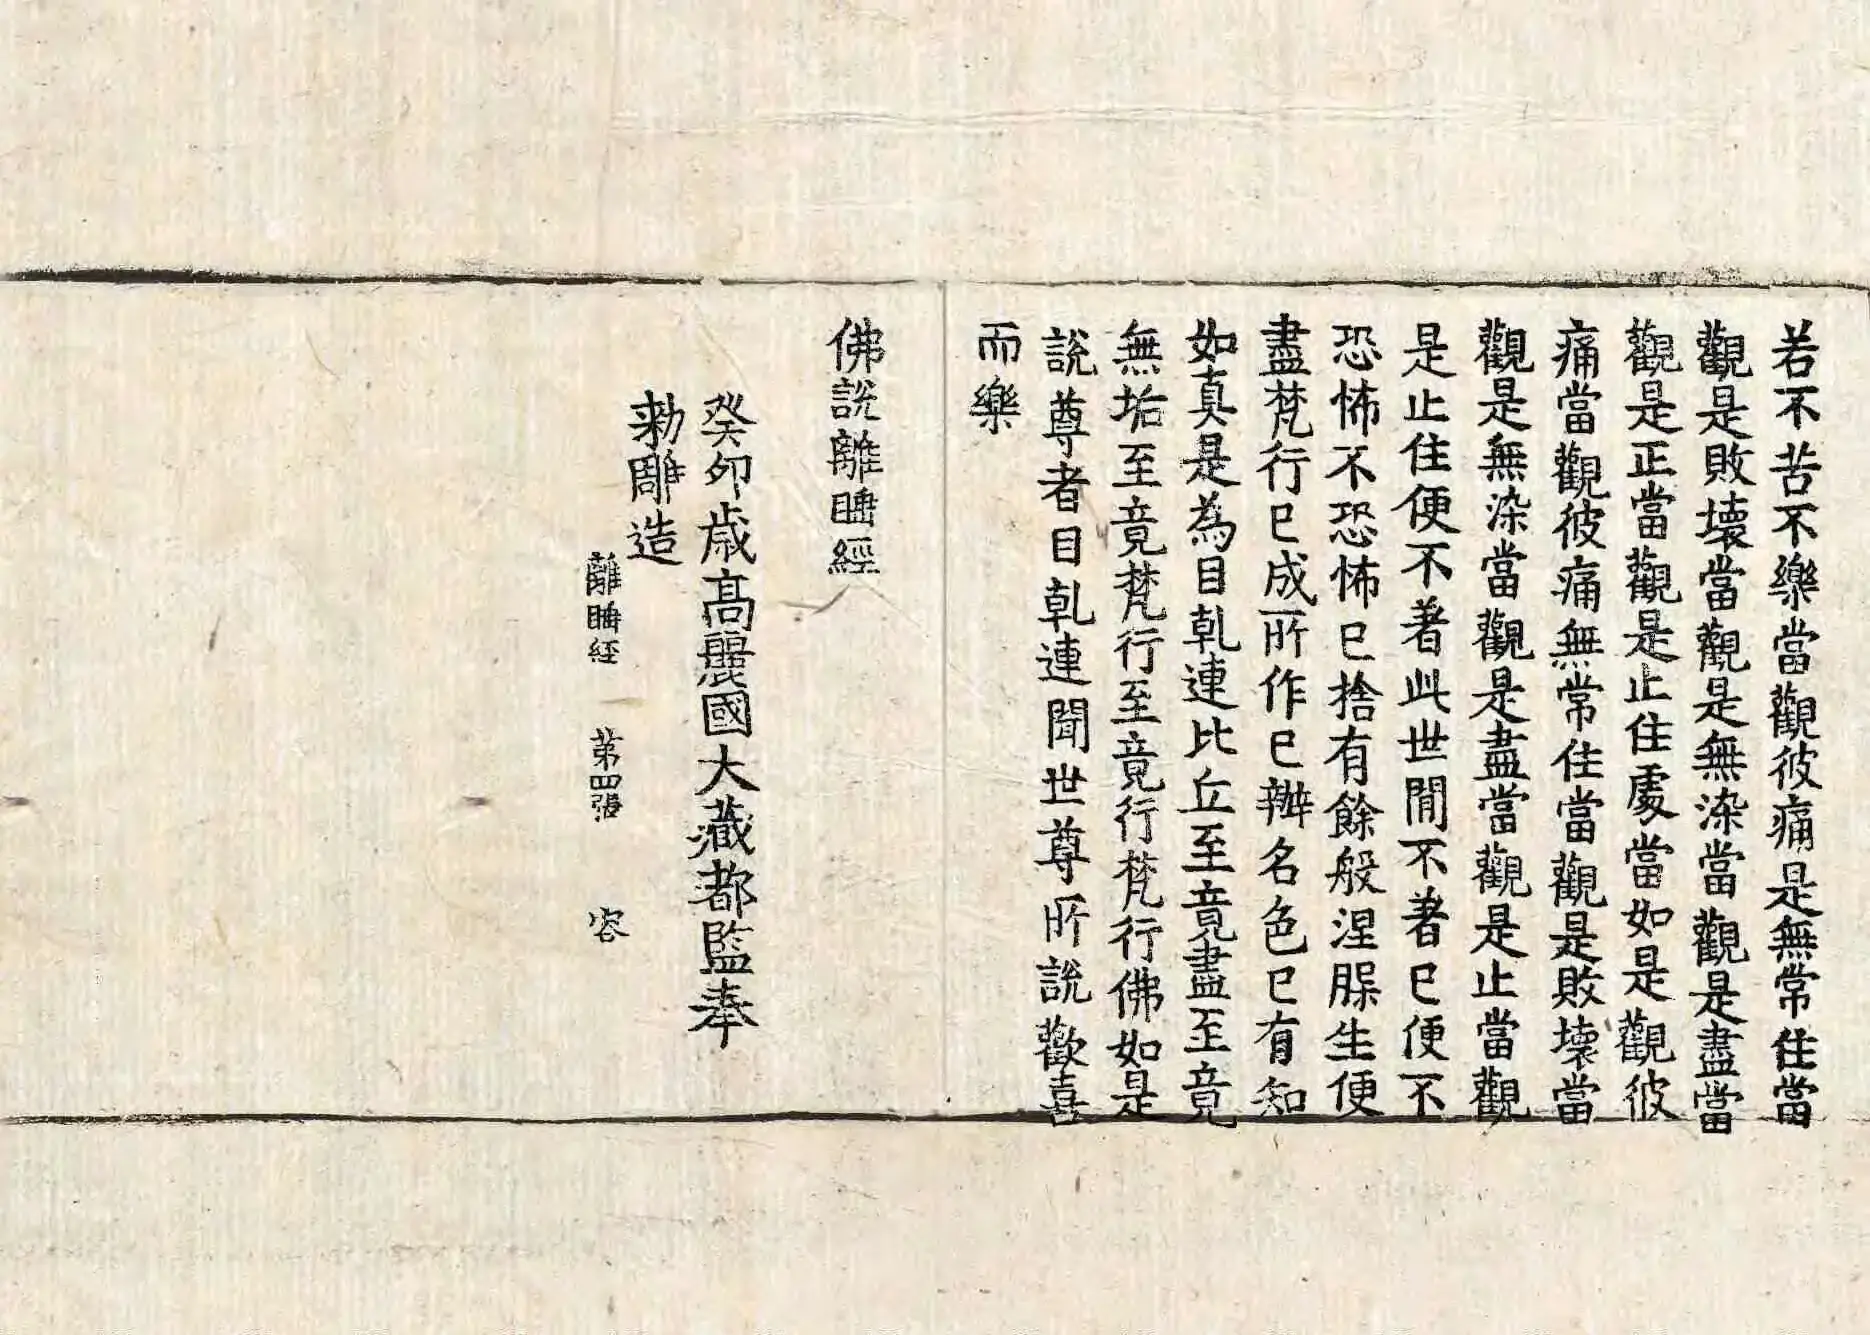 若不苦不樂當觀彼痛是無常住當
觀是敗壞當觀是無染當觀是盡當
觀是正當觀是止住處當如是觀彼
痛當觀彼痛無常住當觀是敗壞當
觀是無染當觀是盡當觀是止當觀
是止住便不著此世間不著已便不
恐怖不恐怖已捨有餘般涅槃生便
盡梵行已成所作已辦名色已有知
如真是為目乹連比丘至竟盡至竟
無垢至竟梵行至竟行梵行佛如是
說尊者目乹連聞世尊所說歡喜
而樂
佛說離睡經
癸卯歲高麗國大藏都監奉
勑雕造
離睡経 第四張 容